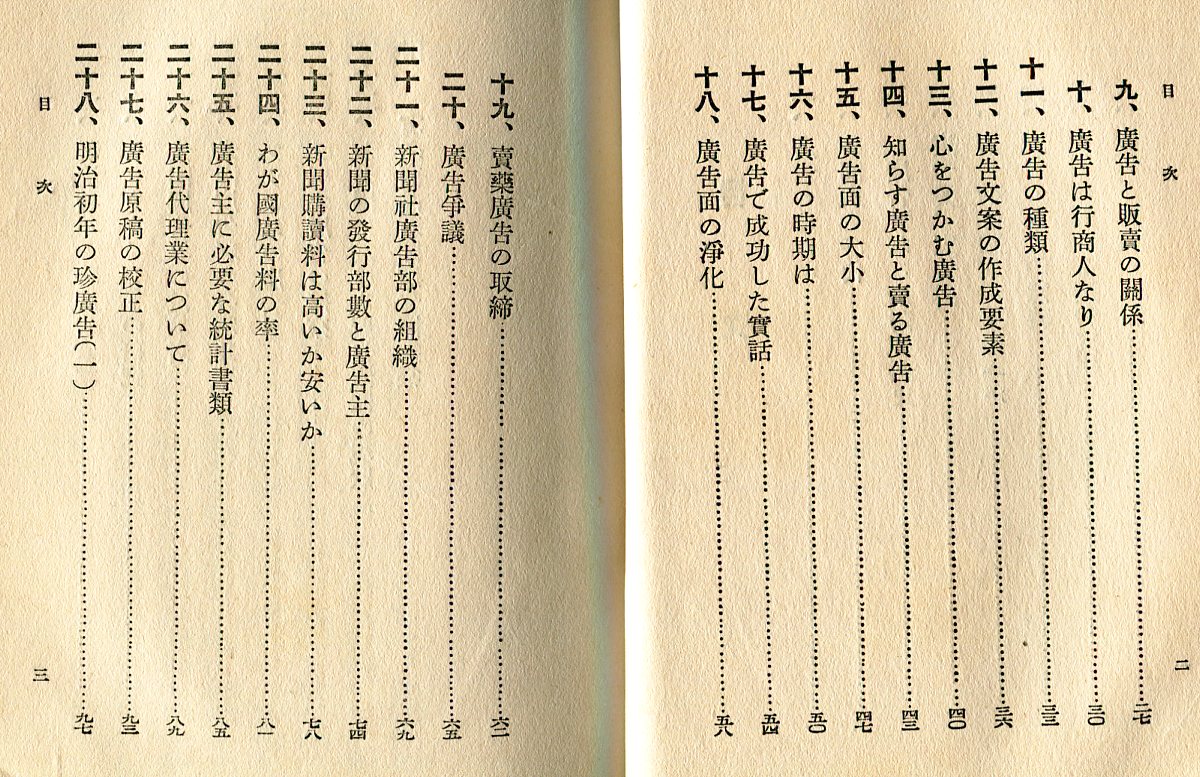 目次
九、廣告と販賣の關係……二七
十、廣告は行商人なり……三〇
十一、廣告の種類……三三
十二、廣告文案の作成要素……三六
十三、心をつかむ廣告……四〇
十四、知らす廣告と賣る廣告……四三
十五、廣告面の大小……四七
十六、廣告の時期は……五〇
十七、廣告で成功した實話……五四
十八、廣告面の淨化……五八
二
十九、賣藥廣告の取締……六二
二十、廣告爭議……六五
二十一、新聞社廣告部の組織……六九
二十二、新聞の發行部數と廣告主……七四
二十三、新聞購讀料は高いか安いか……七八
二十四、わが國廣告料の率……八一
二十五、廣告主に必要な統計書類……八五
二十六、廣告代理業について……八九
二十七、廣告原稿の校正……九三
二十八、明治初年の珍廣告（一）……九七
目次
三